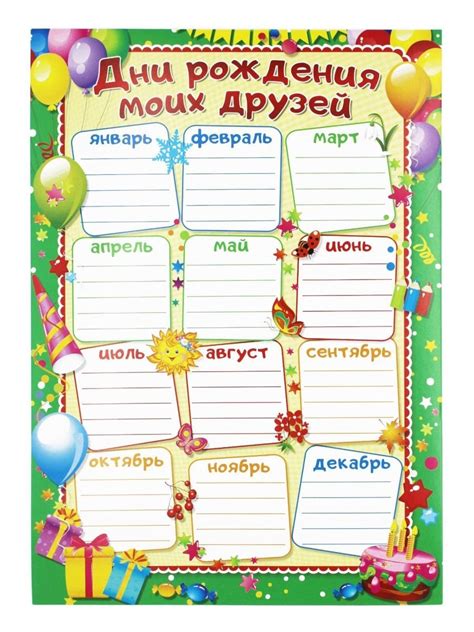 Дни рождения
моих друзей
январь
февраль
март
апрель
май
июнь
июль
август
сентябрь
октябрь
ноябрь
декабрь